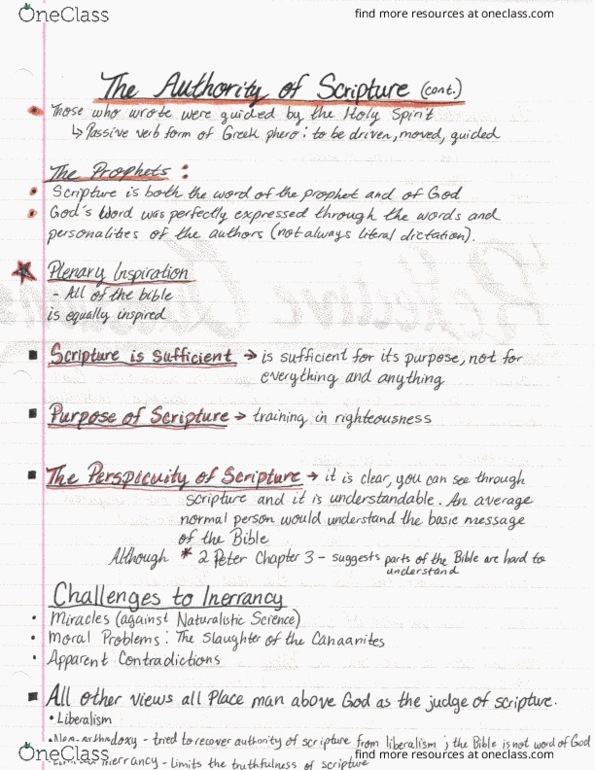 OneClass
find more resources at oneclass.com
The Authority of Scripture (cont.)
• Those who wrote were guided by the Holy Spirit
↳ Passive verb form of Greek phero: to be driven, moved, guided
The Prophets:
• Scripture is both the word of the prophet and of God
• God's Word was perfectly expressed through the words and
personalities of the authors (not always literal dictation).
★ Plenary Inspiration
- All of the bible
is equally inspired
▪ Scripture is Sufficient → is sufficient for its purpose, not for
everything and anything
▪ Purpose of Scripture → training in righteousness
▪ The Perspicuity of Scripture → it is clear, you can see through
scripture and it is understandable. An average
normal person would understand the basic message
of the Bible
Although * 2 Peter Chapter 3 - suggests parts of the Bible are hard to
understand
Challenges to Inerrancy
• Miracles (against Naturalistic Science)
• Moral Problems: The Slaughter of the Canaanites
• Apparent Contradictions
▪ All other views all Place man above God as the judge of scripture.
• Liberalism
• Neo-orthodoxy - tried to recover authority of scripture from liberalism; the Bible is not word of God
inerrancy - Limits the truthfulness of scripture
OneClass
find more resources at oneclass.com